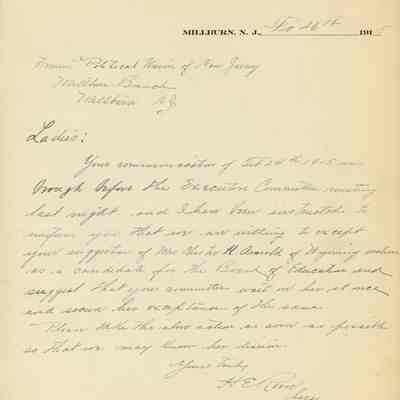 MILLBURN, N. J., Feb 26th 1915
Women's Political Union of New Jersey
Millburn Branch
Millburn N.J.
Ladies:
Your communication of Feb 24th 1915 was
brough before the Executive Committee meeting
last night and I have been instructed to
inform you that we are willing to accept
your suggestion of Mrs H Arnold of Wyoming
as a candidate for the Board of Education and
suggest that your committee wait on her at once
and secure her acceptance of the same.
Please take the above action as soon as possible
so that we may know her decision.
Yours Truly
H. E.
Secy